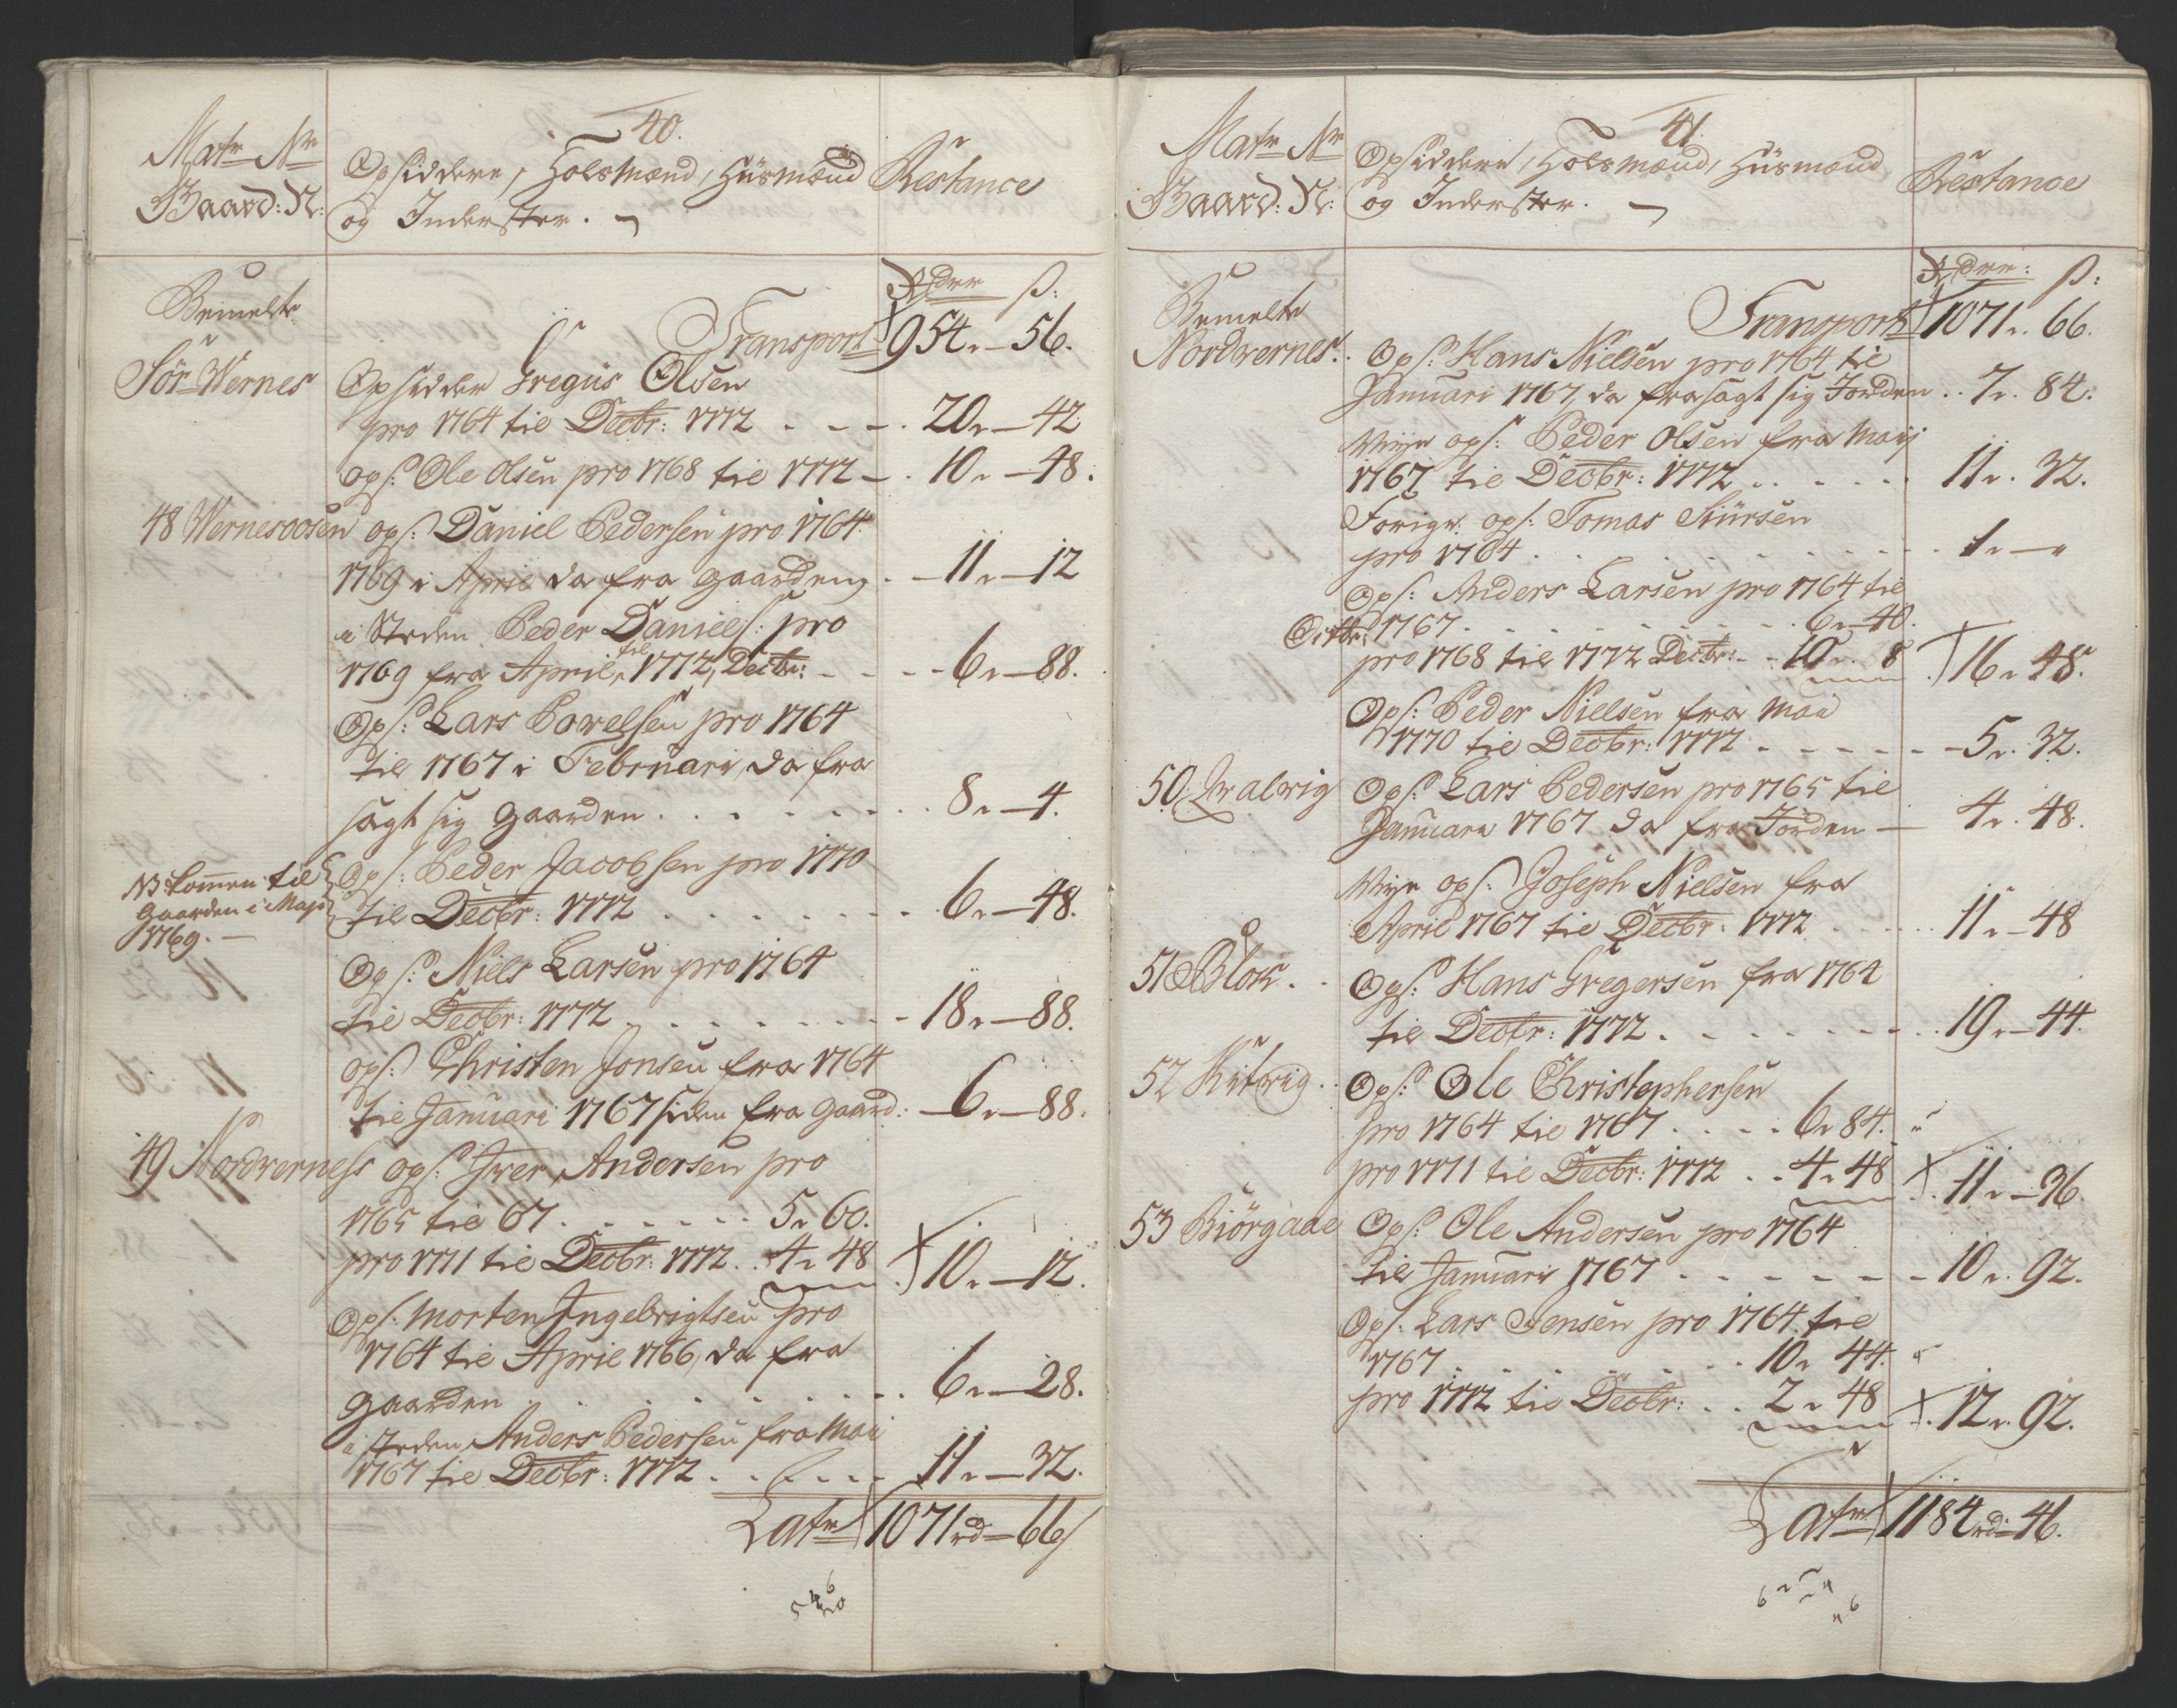 40.
Matr Nr
Gaard: N:
Opsiddere, Holsmænd, Huusmænd
og Inderster.
Restance
Rdrr ß:
Bemelte
Sör Wernes
Transport 954 r - 56.
Opsidder Gregus Olsen
pro 1764 til Decbr: 1772 - - - . 20 r - 42
ops: Ole Olsen pro 1768 til 1772 - . 10 r - 48.
48 Wernesoosen ops: Daniel Pedersen pro 1764.
1769 i April da fra gaarden, . - 11 r - 12
i Steden Peder Daniels: pro
1769 fra April, til 1772, Decbr: - - - - 6 r - 88.
Ops: Lars Povelsen pro 1764
til 1767 i Februari, da fra
sagt sig gaarden . . . . . . . 8 r - 4.
NB kommen til
gaarden i Maji
1769. -
Ops: Peder Jacobsen pro 1770
til Decbr: 1772 . . . . . . . 6 r - 48.
Ops: Niels Larsen pro 1764
til Decbr: 1772 . . . . . . . 18 r - 88.
ops: Christen Jonsen fra 1764
til Januari 1767 siden fra gaard: - 6 r - 88.
49 Nordverness ops: Iver Andersen pro
1765 til 67 . . . . . . . 5 r 60.
pro 1771 til Decbr: 1772 . . 4 r 48 10 r - 12.
Ops: Morten Ingebrigtsen pro
1764 til April 1766, da fra
gaarden . . . . . . . 6 r - 28.
i steden Anders Pedersen fra Maii
1767 til Decbr: 1772 . . . . . 11 r - 32.
Latr 1071 rd - 66
41.
Matr Nr
Gaard: N:
Opsiddere, Holsmænd, Huusmænd
og Inderster.
Restance
Rdrr: ß:
Bemelte
Nordvernes.
Transport 1071 r. 66.
Ops: Hans Nielsen pro 1764 til
Januari 1767, da frasagt sig Jorden . . 7 r. 84.
Nye ops: Peder Olsen fra Maij
1767 til Decbr: 1772 . . . . . 11 r. 32.
Forige ops: Tomas Siursen
pro 1764 . . . . . . . 1 r - "
Ops: Anders Larsen pro 1764 til
Octbr: 1767 . . . . . . . 6 r - 40.
pro 1768 til 1772 Decbr: - . 10 r. 8 16 r 48.
Ops: Peder Nielsen fra Maii
1770 til Decbr: 1772 . - - - - - 5 r. 32.
50. Qvalvig Ops: Lars Pedersen pro 1765 til
Januari 1767 da fra Jorden - 4 r. 48.
Nye ops: Joseph Nielsen fra
April 1767 til Decbr: 1772 . . . . . 11 r - 48
51 Blok. . Ops: Hans Gregersen fra 1764
til Decbr: 1772 . . . . . . . 19 r - 44.
52 Kutvig . . Ops: Ole Christophersen
pro 1764 til 1767 . . . . 6 r 84.
pro 1771 til Decbr: 1772 . . 4 r 48 11 r - 36.
53 Biörgaae Ops: Ole Andersen pro 1764
til Januari 1767 . - - - - - 10 r. 92.
Ops: Lars Jensen pro 1764 til
1767 . . . . . . . 10 r 44.
pro 1772 til Decbr: . . 2 r 48 12 r. 92.
Latr 1184 rd - 46.